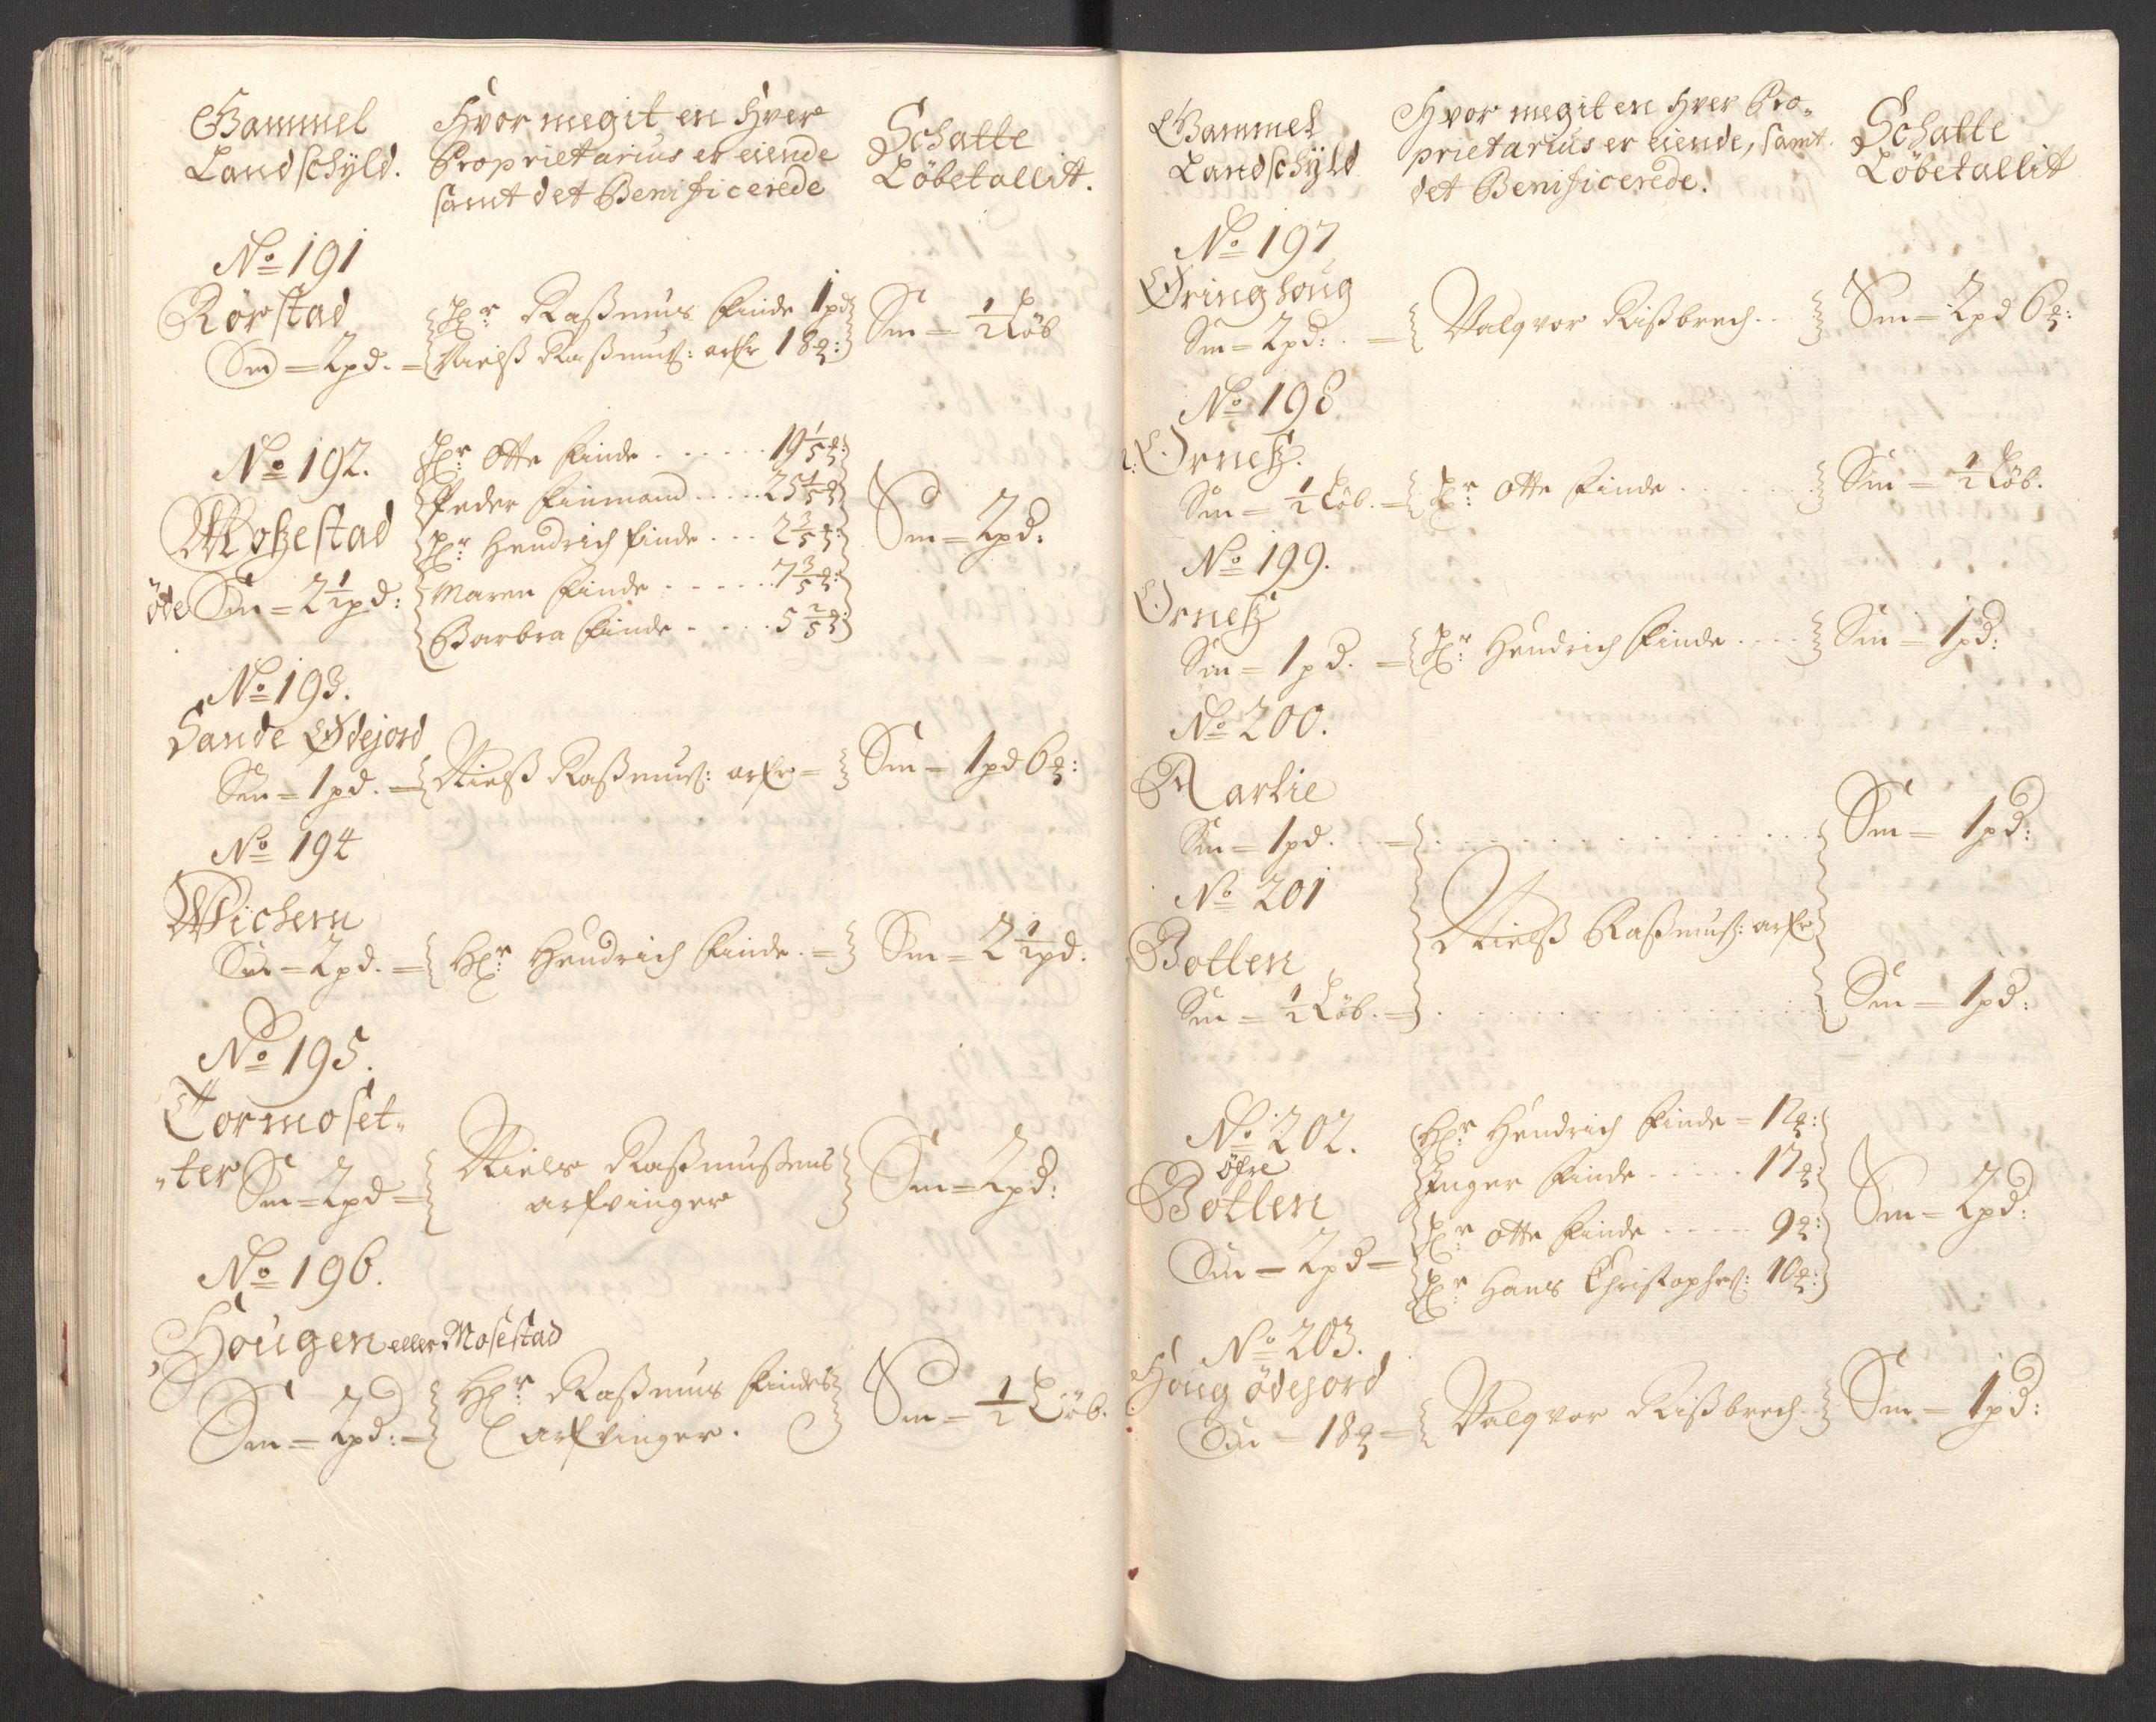 Gammel
Landschyld.
Hvor megit en Hver
Proprietarius er eiende
samt det Benificerede
Schatte
Löbetallit.
No 191
Rörstad
Sm = 2 pd. =
Hr: Rasmus Finde 1 pd
Nielß Raßmuß: arfr 18 ℔:
Sm = 1/2 Löb
No 192.
Moßestad
öde Sm = 2 1/2 pd:
Hr: Otte Finde . . . . . . 19 1/5 ℔:
Peder Finmand . . . . . 25 1/5 ℔
Hr: Hendrich Finde . . . 2 3/5 ℔:
Maren Finde . . . . . . 7 3/5 ℔:
Barbra Finde . . . . 5 2/5 ℔
Sm = 2 pd:
No 193.
Sande Ødejord
Sm = 1 pd. =
Nielß Raßmuß: arfr =
Sm = 1 pd 6 ℔:
No 194
Wichern
Sm = 2 pd. =
Hr: Hendrich Finde . =
Sm = 2 1/2 pd:
No 195.
Tormoset-
-ter Sm = 2 pd =
Niels Raßmußens
arfvinger
Sm = 2 pd:
No 196.
Hougen eller Mosestad
Sm = 2 pd: =
Hr: Raßmus Findes
arfvinger.
Sm = 1/2 Löb.
Gammel
Landschyld
Hvor megit en Hver Pro-
prietarius er eiende, samt
det Benificerede.
Schatte
Löbetallit
No 197
Øringhoug
Sm = 2 pd: . =
Valgvor Rißbrech . .
Sm = 2 pd 6 ℔:
No 198
Orneß.
Sm = 1/2 Löb. =
Hr: Otte Finde . . . . .
Sm = 1/2 Löb.
No 199.
Orneß
Sm = 1 pd. =
Hr: Hendrich Finde . . . .
Sm = 1 pd:
No 200.
Marlie
Sm = 1 pd. . . =
Sm = 1 pd:
No 201
Botten
Sm = 1/2 Löb. =
Nielß Raßmuß: arfr
Sm = 1 pd:
No 202.
öfre
Botten
Sm = 2 pd =
Hr: Hendrich Finde = 12 ℔:
Inger Finde . . . . . 17 ℔:
Hr: Otte Finde . . . . . 9 ℔:
Hr: Hans Christophß: 10 ℔:
Sm = 2 pd:
No 203.
Houg ödejord
Sm = 18 ℔ =
Valgvor Rißbrech . .
Sm = 1 pd: